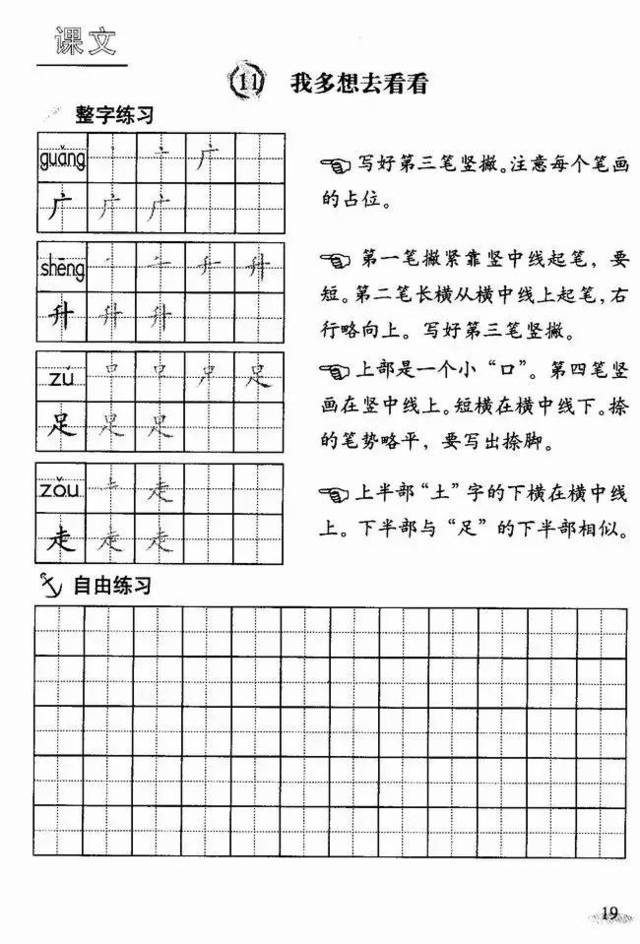 课文
11 我多想去看看
整字练习
guǎng 丶 亠 广
广 广 广
写好第三笔竖撇。注意每个笔画
的占位。
shēng 丿 𠂉 升 升
升 升 升
第一笔撇紧靠竖中线起笔，要
短。第二笔长横从横中线上起笔，右
行略向上。写好第三笔竖撇。
zú 口 足
足 足 足
上部是一个小“口”。第四笔竖
画在竖中线上。短横在横中线下。捺
的笔势略平，要写出捺脚。
zǒu 走
走 走 走
上半部“土”字的下横在横中线
上。下半部与“足”的下半部相似。
自由练习
19